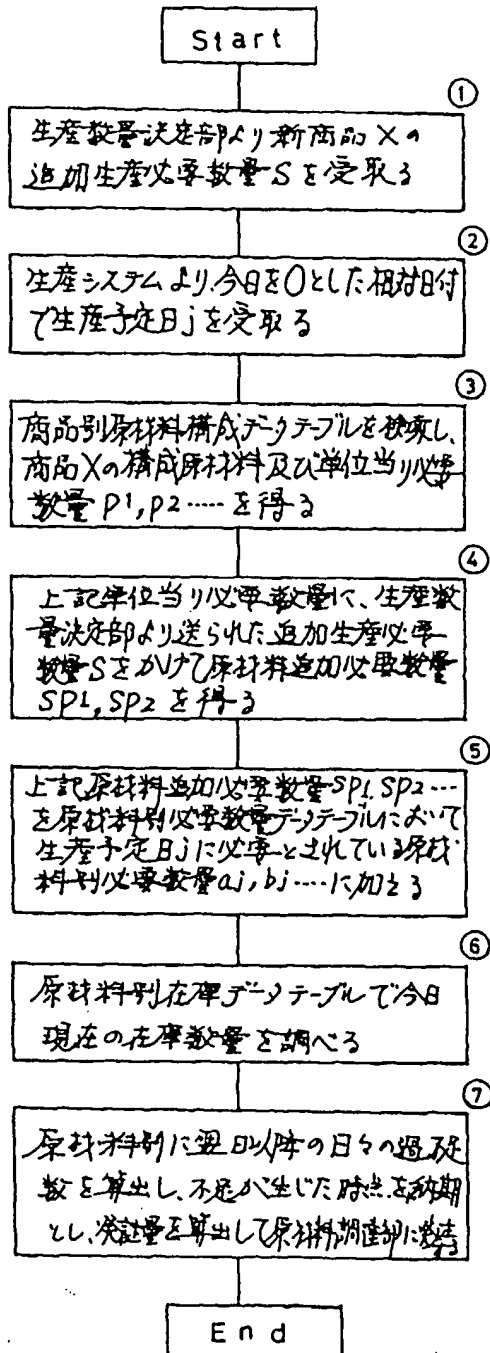 Start
①
生産数量決定部より新商品Xの
追加生産必要数量Sを受取る
②
生産システムより、今日を0とした相対日付
で生産予定日jを受取る
③
商品別原材料構成データテーブルを検索し、
商品Xの構成原材料及び単位当り必要
数量P1,P2……を得る
④
上記単位当り必要数量に、生産数
量決定部より送られた追加生産必要
数量Sをかけて原材料追加必要数量
SP1,SP2を得る
⑤
上記原材料追加必要数量SP1,SP2…
を原材料別必要数量データテーブルにおいて
生産予定日jに必要とされている原材
料別必要数量aj,bj……に加える
⑥
原材料別在庫データテーブルで今日
現在の在庫数量を調べる
⑦
原材料別に翌日以降の日々の過不足
数を算出し、不足が生じた時点を納期
とし、発注量を算出して原材料調達部に発注する
End